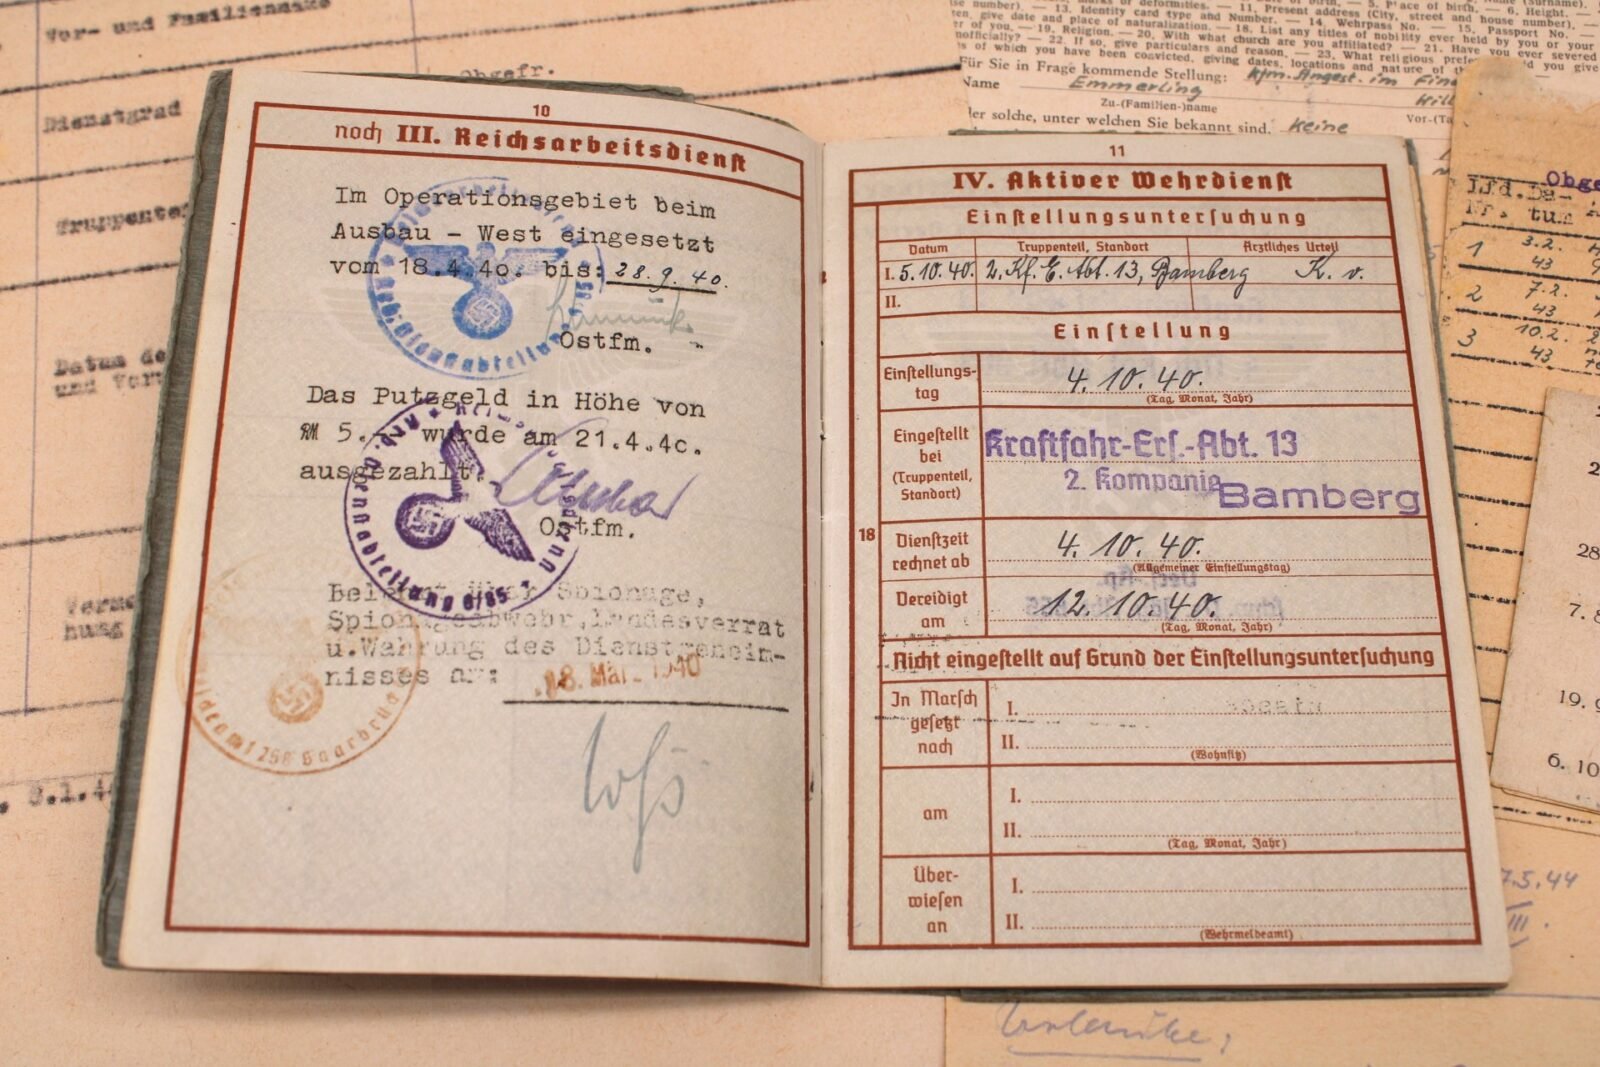 Vor- und Familienname
Obgefr.
Dienstgrad
Truppente
Datum de
und
hung
8.1.4
10
noch III. Reichsarbeitsdienst
Im Operationsgebiet beim
Ausbau - West eingesetzt
vom 18.4.4o. bis: 28.9.40.
Ostfm.
Das Putzgeld in Höhe von
RM 5.-- wurde am 21.4.4o.
ausgezahlt.
Ostfm.
Belehrt über Spionage,
Spionageabwehr, Landesverrat
u. Wahrung des Dienstgeheim-
nisses am: 18. Mai 1940
Saarbrück
11
IV. Aktiver Wehrdienst
Einstellungsuntersuchung
Datum Truppenteil, Standort Ärztliches Urteil
I. 5.10.40. 2. Kf. E. Abt. 13, Bamberg K. v.
II.
Einstellung
Einstellungs-
tag
4. 10. 40.
(Tag, Monat, Jahr)
Eingestellt
bei
(Truppenteil,
Standort)
Kraftfahr-Ers.-Abt. 13
2. Kompanie Bamberg
18
Dienstzeit
rechnet ab
4. 10. 40.
(Allgemeiner Einstellungstag)
Vereidigt
am
12. 10. 40.
(Tag, Monat, Jahr)
Nicht eingestellt auf Grund der Einstellungsuntersuchung
In Marsch
gesetzt
nach
I.
II.
(Wohnsitz)
am
I.
II.
(Tag, Monat, Jahr)
Über-
wiesen
an
I.
II.
(Wehrmeldeamt)
marks or deformities. — 11. Present address (City, street and house number). —
se number). — 13. Identity card type and Number. — 14. Wehrpass No. — 15. Passport No. —
en, give date and place of naturalization. — 18. List any titles of nobility ever held by you or your
er of you. — 19. Religion. — 20. With what church are you affiliated? — 21. Have you ever severed
nofficially? — 22. If so, give particulars and reason. — 23. What religious
s of which you have been convicted, giving dates, locations and nature of
Für Sie in Frage kommende Stellung: kfm. Angest. im
Name Emmerling
Zu-(Familien-)name
Vor-
der solche, unter welchen Sie bekannt sind. keine
Obge
Lfd. Da-
Nr. tum
1 3.2.
43
2 7.2.
3 10.2.
43
28
7. 8
19.
6. 10
7.5.44
III.